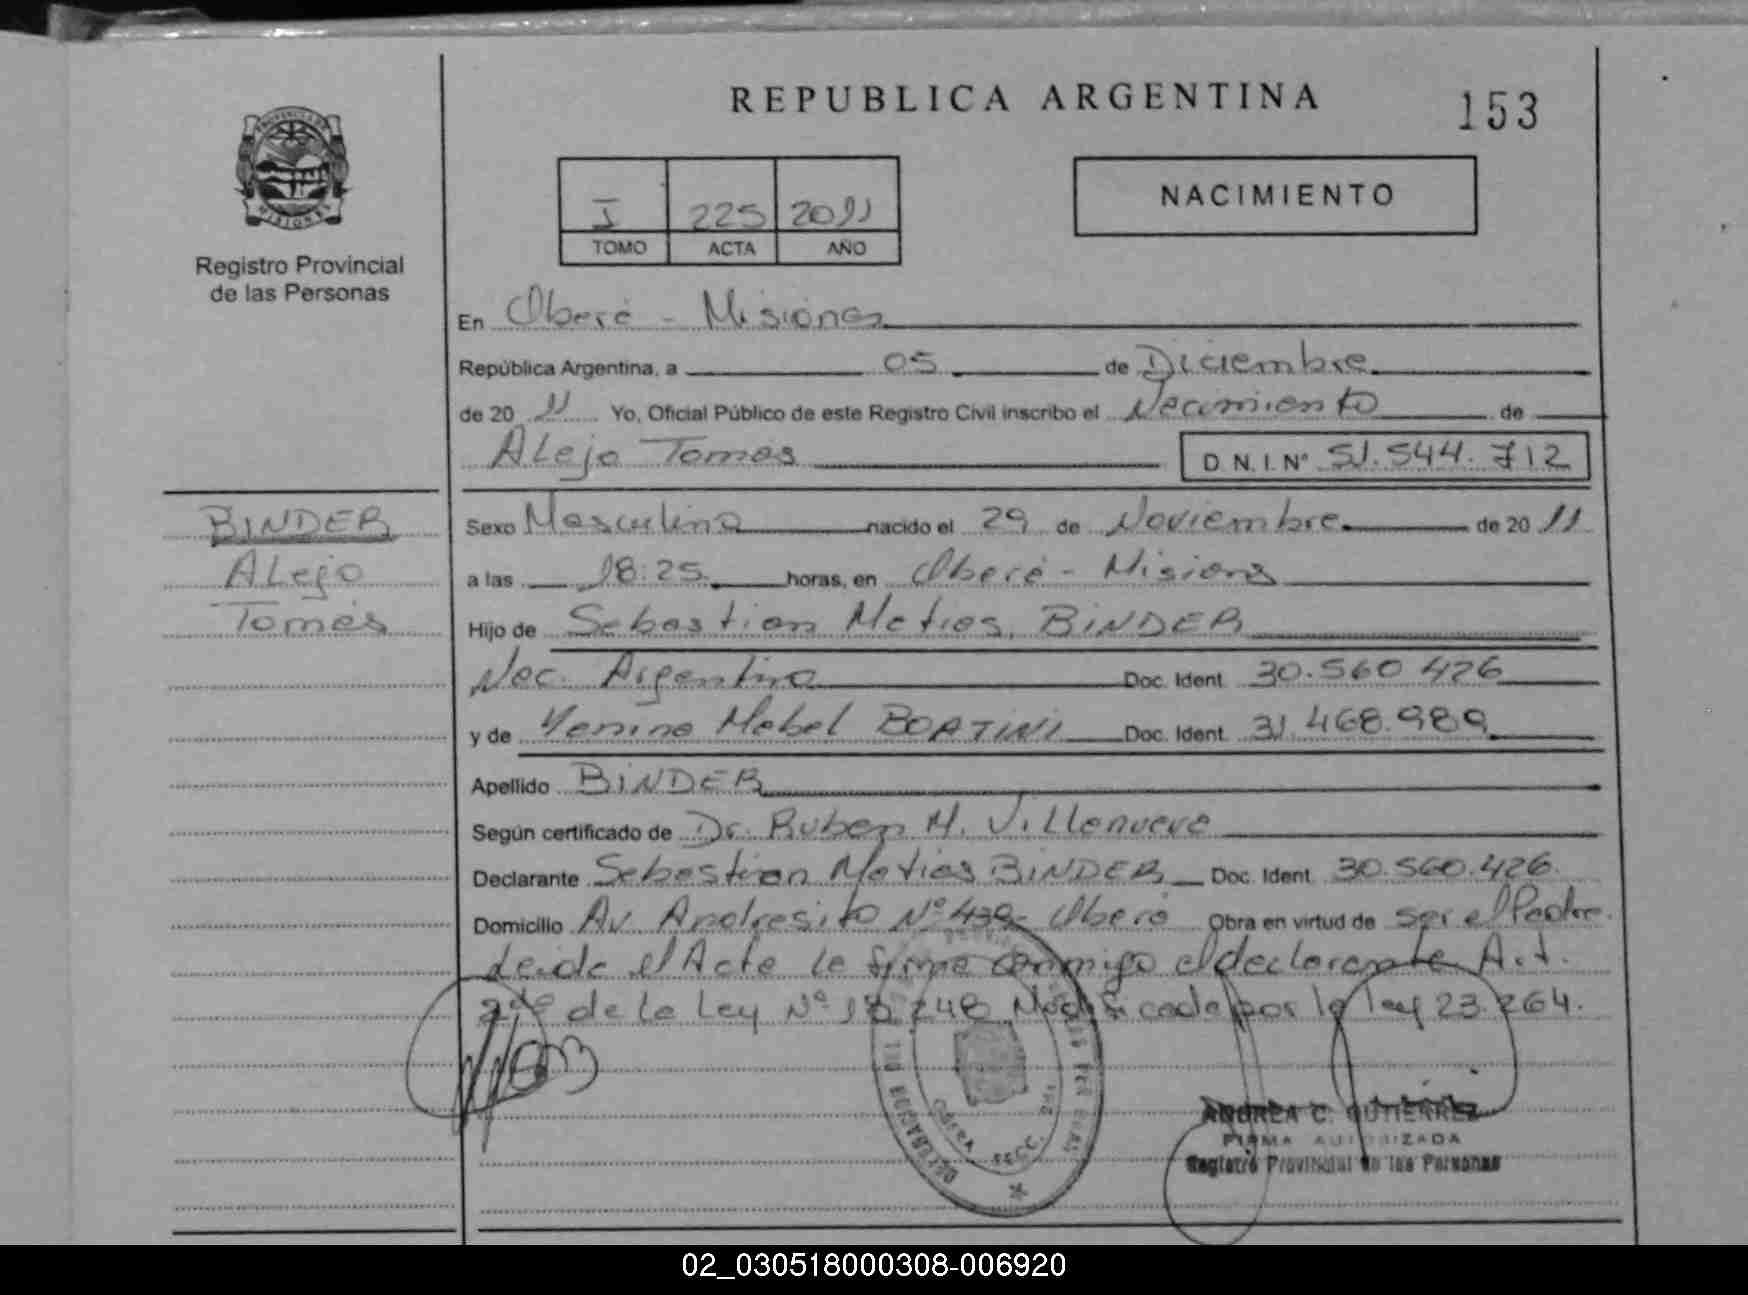 REPUBLICA ARGENTINA
153
PROVINCIA DE
MISIONES
Registro Provincial
de las Personas
I 225 2011
TOMO ACTA AÑO
NACIMIENTO
En Oberá - Misiones
República Argentina, a 05 de Diciembre
de 20 11 Yo, Oficial Público de este Registro Civil inscribo el Nacimiento de
Alejo Tomás D.N.I. N° 51.544.712
BINDER
Alejo
Tomás
Sexo Masculino nacido el 29 de Noviembre de 20 11
a las 18:25 horas, en Oberá - Misiones
Hijo de Sebastian Matias BINDER
Nac. Argentina Doc. Ident. 30.560.426
y de Yanina Mabel BOATINI Doc. Ident. 31.468.989
Apellido BINDER
Según certificado de Dr. Ruben M. Villanueva
Declarante Sebastian Matias BINDER Doc. Ident. 30.560.426
Domicilio Av. Andresito N° Oberá Obra en virtud de ser el Padre
Leida el Acta la firma conmigo el declarante Art.
de la Ley N° 18.248 Modificada por la ley 23.264.
ANDREA C. GUTIERREZ
FIRMA AUTORIZADA
Registro Provincial de las Personas
02_030518000308-006920